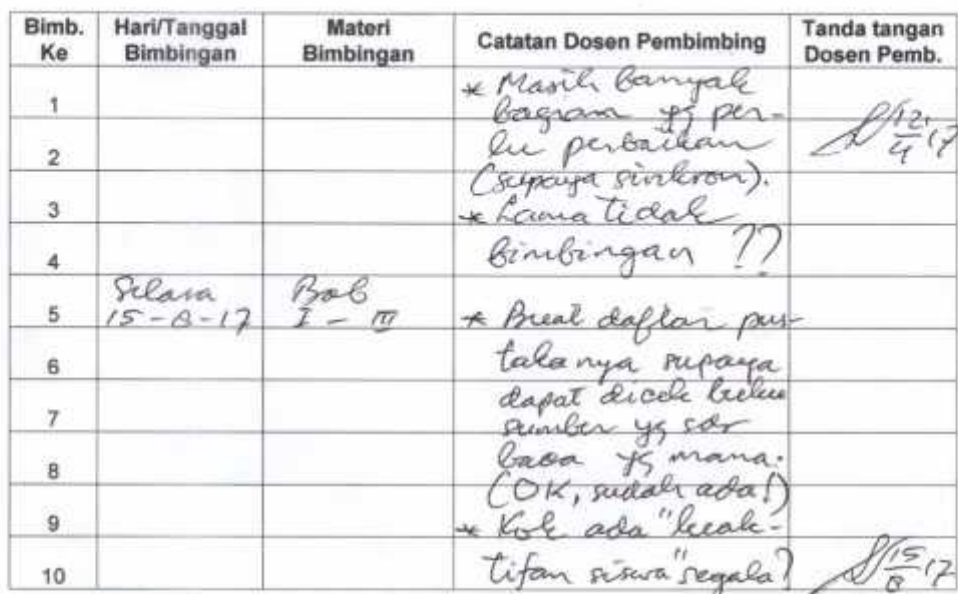 Bimb. Ke Hari/Tanggal Bimbingan Materi Bimbingan Catatan Dosen Pembimbing Tanda tangan Dosen Pemb.
1 * Masih banyak
bagian yg per-
2 lu perbaikan 12/4 '17
(supaya sinkron).
3 * Lama tidak
4 bimbingan ??
Selasa Bab
5 15-8-17 I - III * Buat daftar pus-
6 takanya supaya
dapat dicek buku
7 sumber yg sdr
baca yg mana.
8 (OK, sudah ada!)
9 * Kok ada "keak-
10 tifan siswa" segala? 15/8 '17